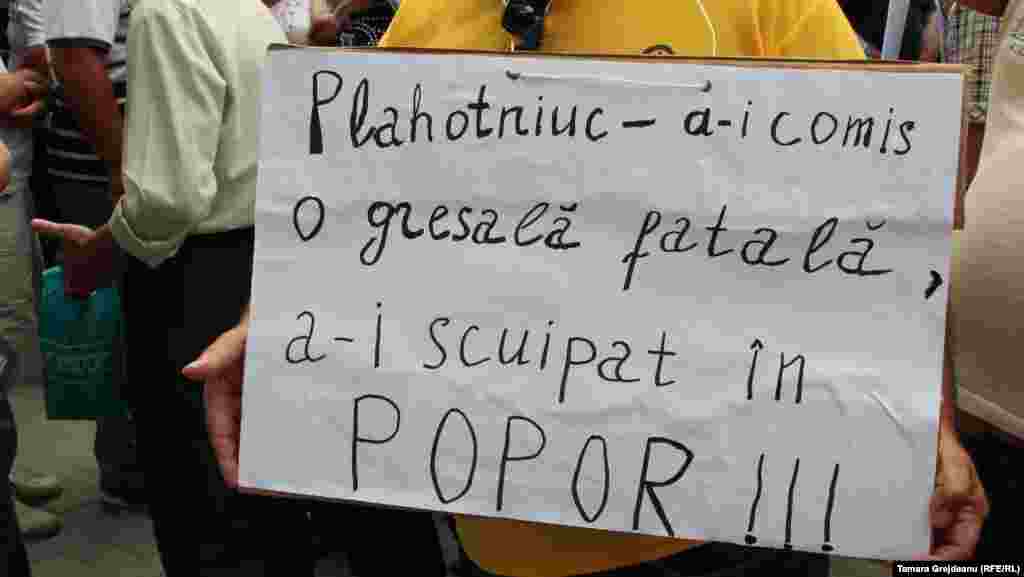 Plahotniuc – a-i comis
o gresală fatală,
a-i scuipat în
POPOR !!!
Tamara Grejdeanu (RFE/RL)